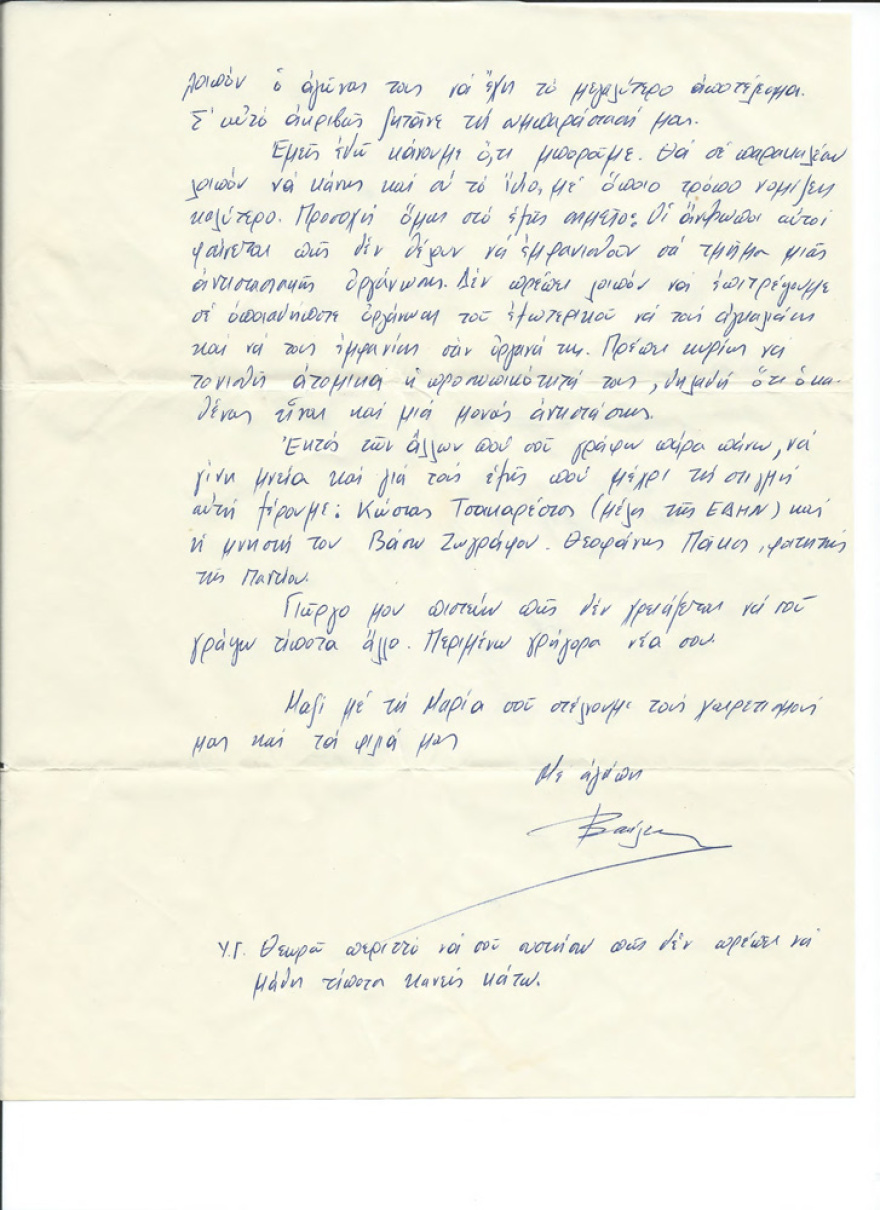 λοιπόν ὁ ἀγώνας τους νά ἔχη τό μεγαλύτερο ἀποτέλεσμα.
Σ' αὐτό ἀκριβῶς ζητᾶνε τήν συμπαράστασή μας.
Ἐμεῖς ἐδῶ κάνουμε ὅ,τι μποροῦμε. Θά σέ παρακαλέσω
λοιπόν νά κάνης καί σύ τό ἴδιο, μέ ὅποιο τρόπο νομίζεις
καλύτερο. Προσοχή ὅμως στό ἑξῆς σημεῖο: Οἱ ἄνθρωποι αὐτοί
φαίνεται πῶς δέν θέλουν νά ἐμφανισθοῦν σά τμῆμα μιᾶς
ἀντιστασιακῆς ὀργάνωσης. Δέν πρέπει λοιπόν νά ἐπιτρέψουμε
σέ ὁποιαδήποτε ὀργάνωση τοῦ ἐξωτερικοῦ νά τούς ἀγκαλιάση
καί νά τους ἐμφανίση σάν ὄργανά της. Πρέπει κυρίως νά
τονισθῆ ἀτομικά ἡ προσωπικότητά τους, δηλαδή ὅτι ὁ κα-
θένας εἶναι καί μιά μονάς ἀντιστάσεως.
Ἐκτός τῶν ἄλλων πού σοῦ γράφω πάρα πάνω, νά
γίνη μνεία καί γιά τούς ἑξῆς πού μέχρι τή στιγμή
αὐτή ξέρουμε: Κώστας Τσακαρέστος (μέλος τῆς ΕΔΗΝ) καί
ἡ μνηστή του Βάσω Ζωγράφου. Θεοφάνης Πάκος, φοιτητής
τῆς Παντείου.
Γιῶργο μου πιστεύω πῶς δέν χρειάζεται νά σοῦ
γράψω τίποτα ἄλλο. Περιμένω γρήγορα νέα σου.
Μαζί μέ τή Μαρία σοῦ στέλνουμε τούς χαιρετισμούς
μας καί τά φιλιά μας
Με ἀγάπη
Υ.Γ. Θεωρῶ περιττό νά σοῦ συστήσω πῶς δέν πρέπει νά
μάθη τίποτα κανείς κάτω.